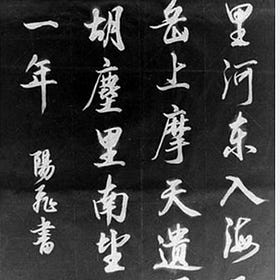 里河东入海
岳上摩天遺
胡塵里南望
一年
陽書